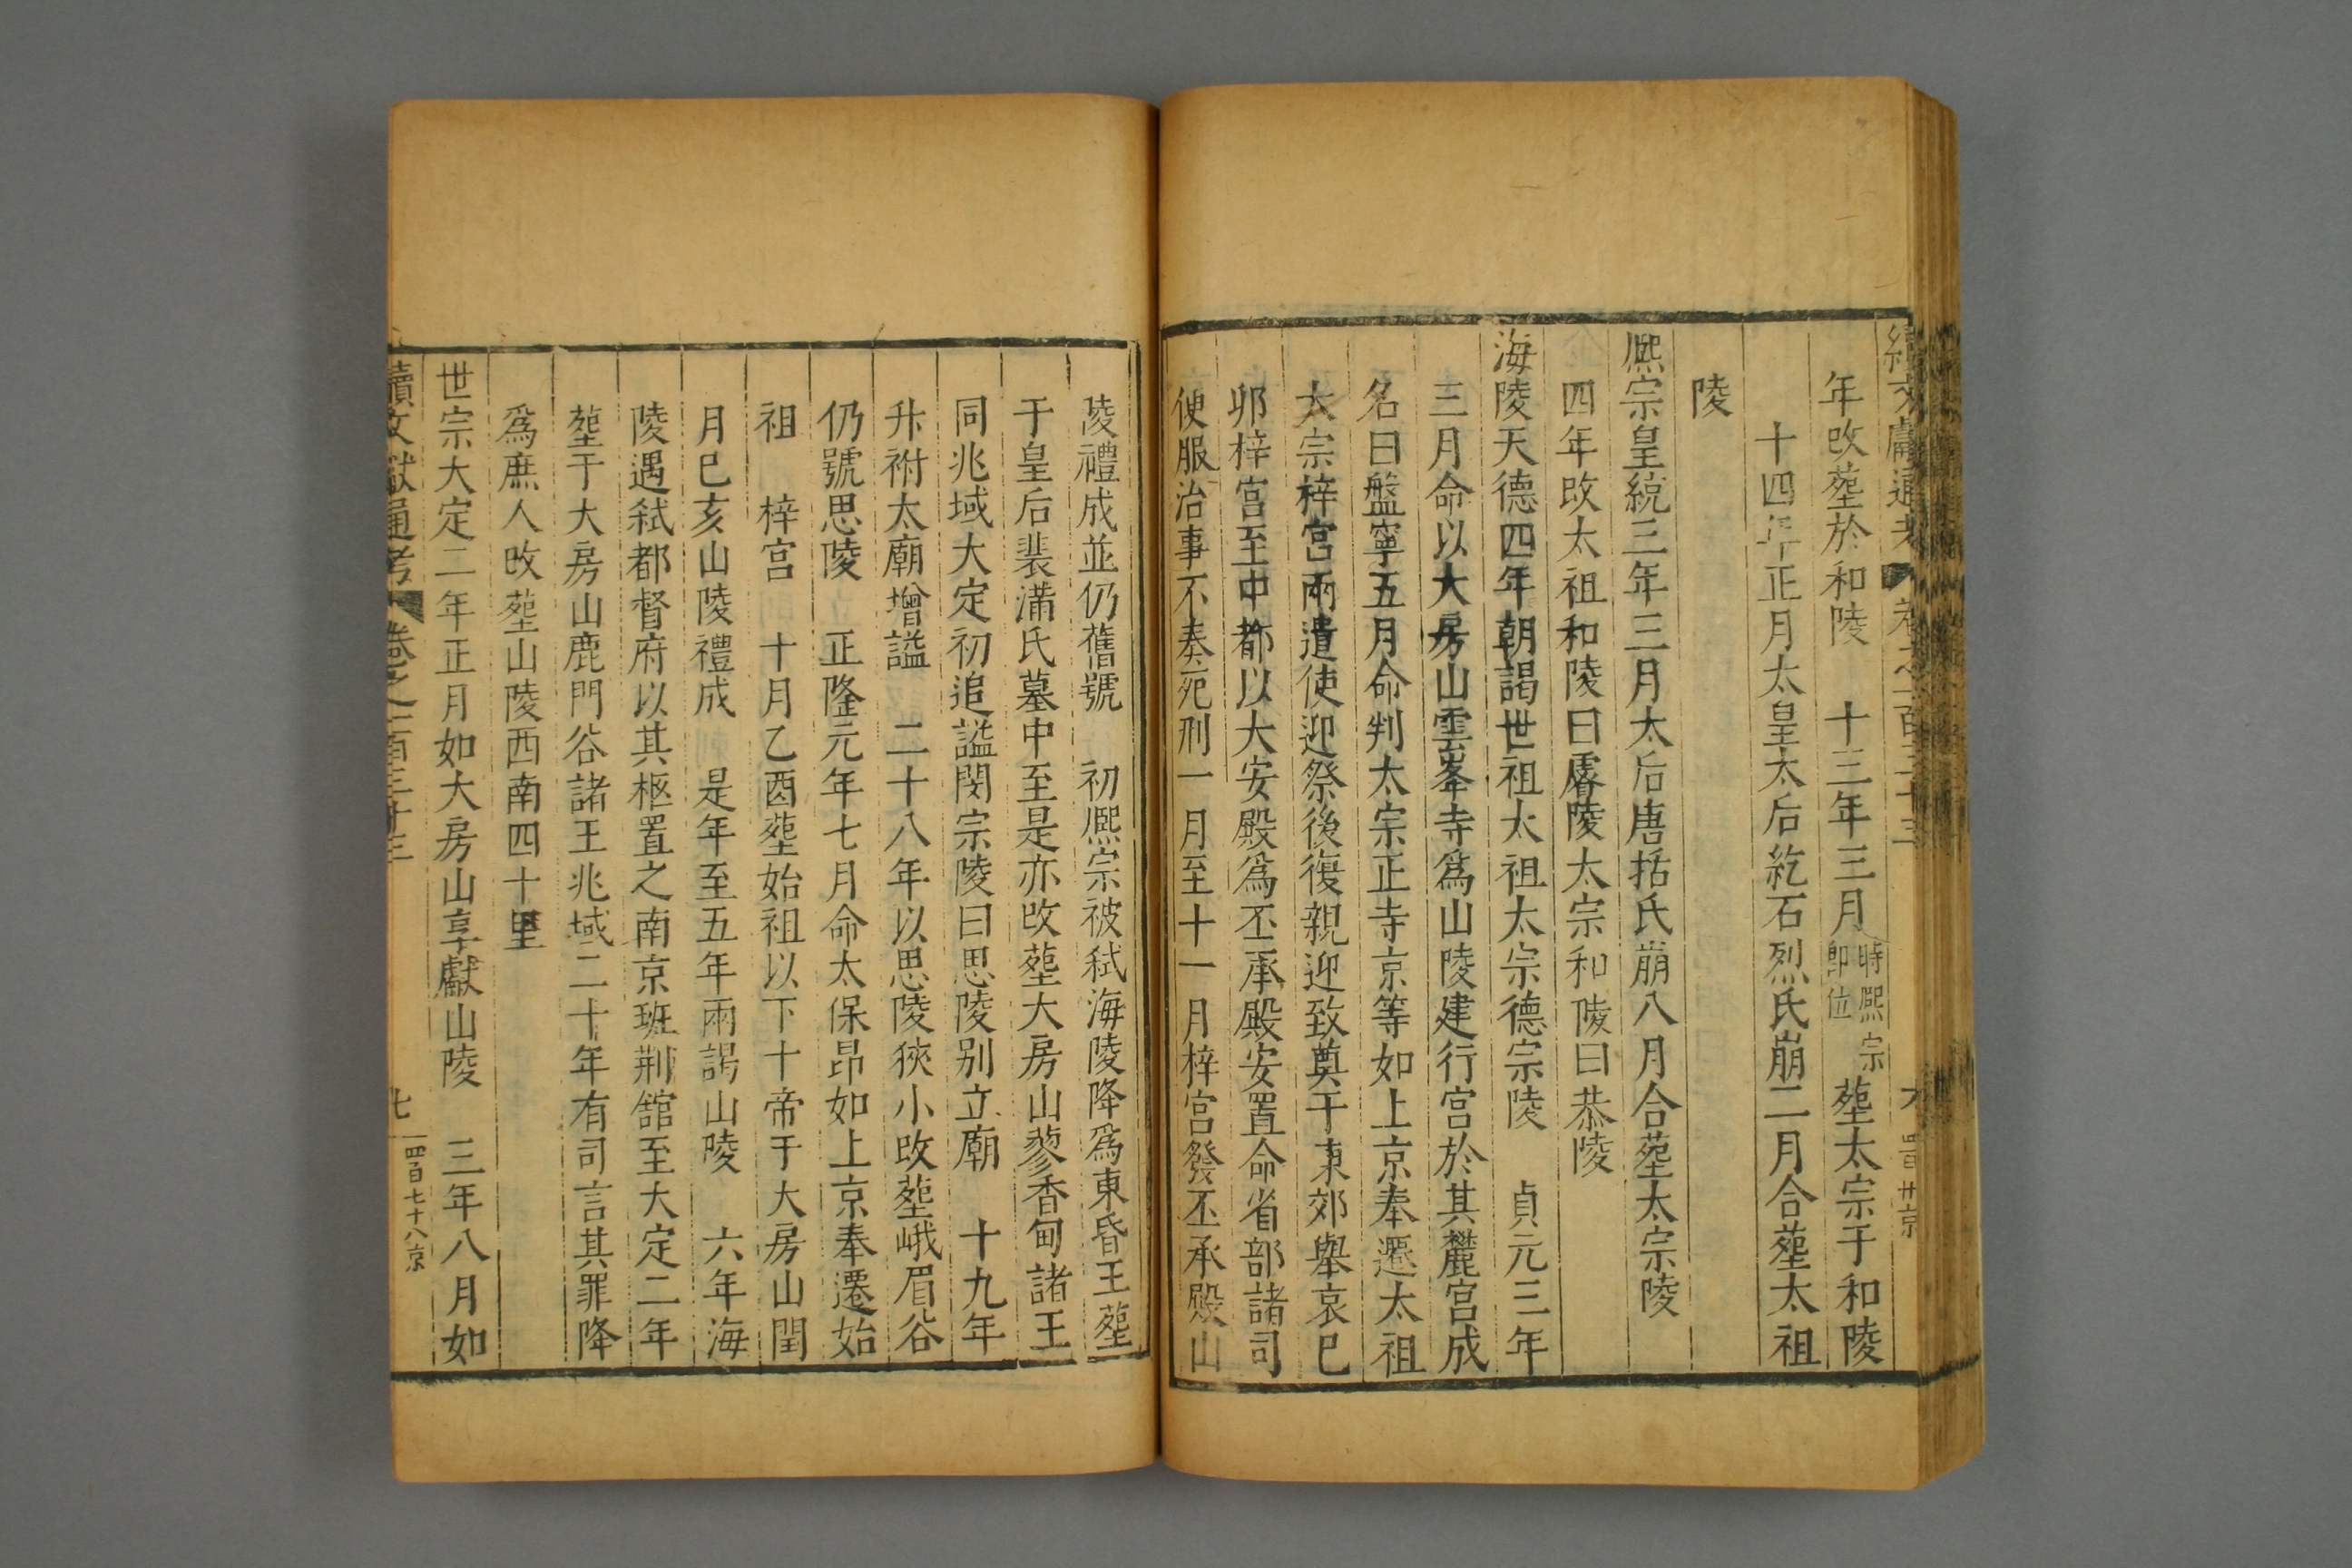 續文獻通考 卷之一百三十三 六 四百廿京
年改塟於和陵 十三年三月時熙宗即位塟太宗于和陵
十四年正月太皇太后紇石烈氏崩二月合塟太祖
陵
熈宗皇統三年三月太后唐括氏崩八月合塟太宗陵
四年改太祖和陵曰睿陵太宗和陵曰恭陵
海陵天德四年朝謁世祖太祖太宗德宗陵 貞元三年
三月命以大房山雲峯寺爲山陵建行宫於其麓宫成
名曰盤寧五月命判太宗正寺京等如上京奉遷太祖
太宗梓宫兩遣使迎祭後復親迎致奠于東郊舉哀巳
卯梓宫至中都以大安殿爲丕承殿安置命省部諸司
便服治事不奏死刑一月至十一月梓宫發丕承殿山
陵禮成並仍舊號 初熈宗被弑海陵降爲東昏王塟
于皇后裴滿氏墓中至是亦改塟大房山蓼香甸諸王
同兆域大定初追謚閔宗陵曰思陵别立廟 十九年
升祔太廟增謚 二十八年以思陵狹小改塟峨眉谷
仍號思陵 正隆元年七月命太保昂如上京奉遷始
祖 梓宫 十月乙酉塟始祖以下十帝于大房山閏
月巳亥山陵禮成 是年至五年兩謁山陵 六年海
陵遇弑都督府以其柩置之南京班荆舘至大定二年
塟于大房山鹿門谷諸王兆域二十年有司言其罪降
爲庶人改塟山陵西南四十里
世宗大定二年正月如大房山享獻山陵 三年八月如
續文獻通考 卷之一百三十三 七 四百七十八京